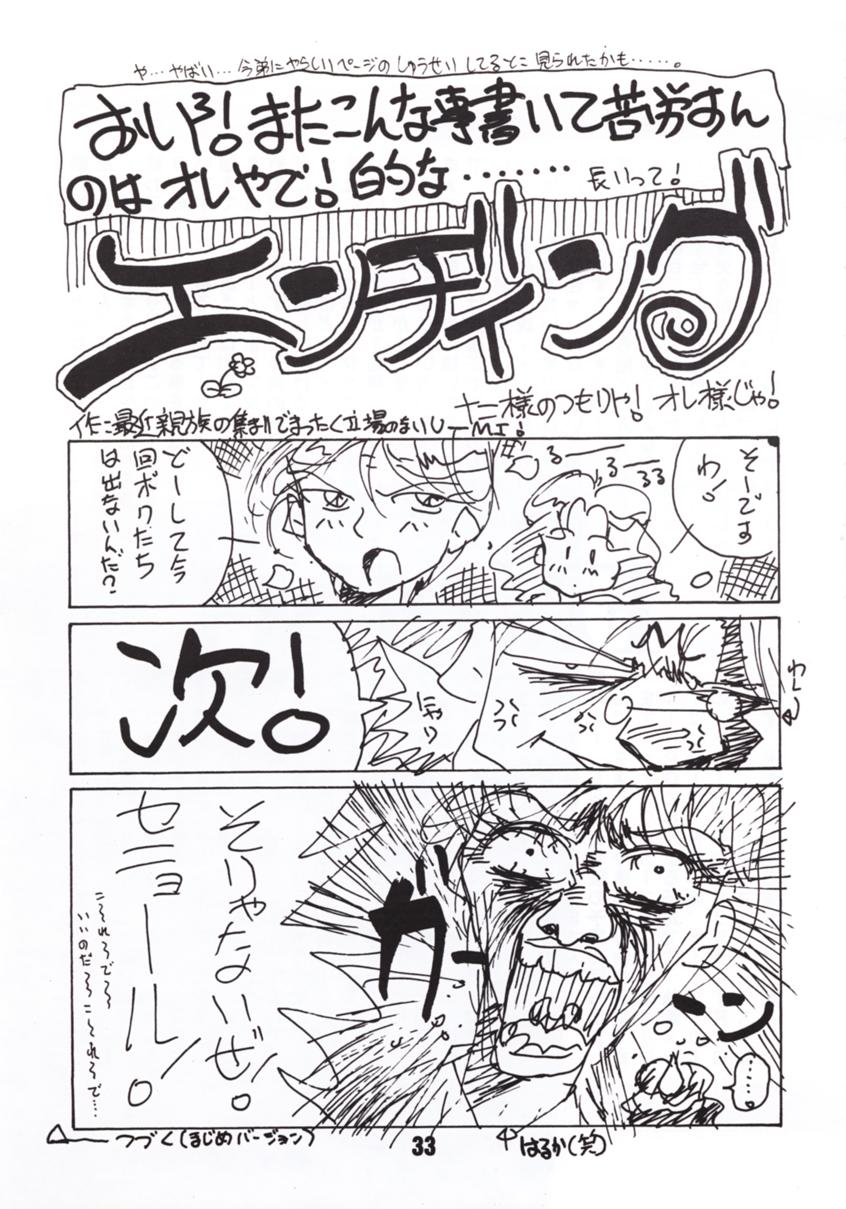 や…やばい…今弟にやらしいページのしゅうせいしてるとこ見られたかも……。
おいろ!またこんな事書いて苦労すん
のはオレやで!的な・・・・・・・
長いって!
エンディング
十二様のつもりや!オレ様じゃ!
作:最近親族の集まりでまったく立場のまいU-MI!
そーです
わ!
るー
るー
るる
どーして今
回ボクだち
は出ないんだ?
わーん
にやり
次!
ガーッ
そりゃないぜ!
セニョール。
こ〜れろでろ〜
いいのだ〜ろ〜
こ〜れろで…
………
つづく(まじめバージョン)
33
はるか(笑)